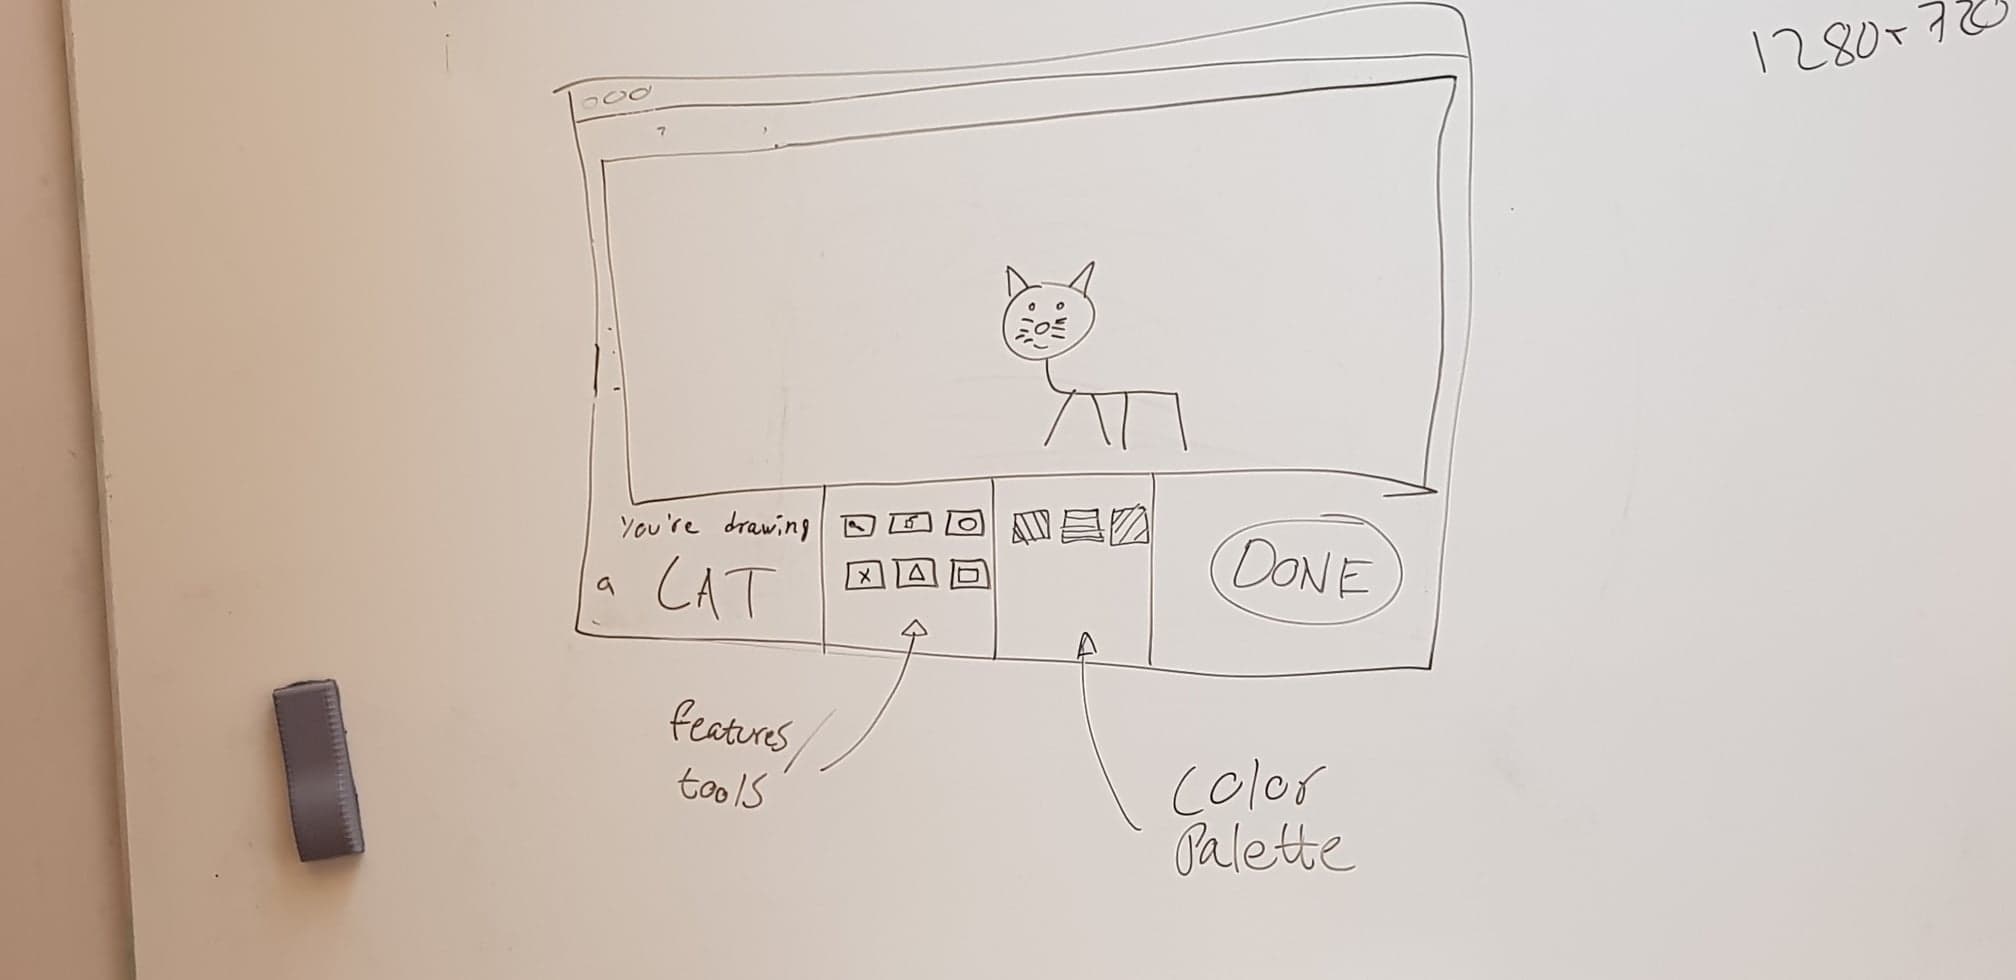 1280x720
You're drawing
a CAT
DONE
features/
tools
Color
Palette